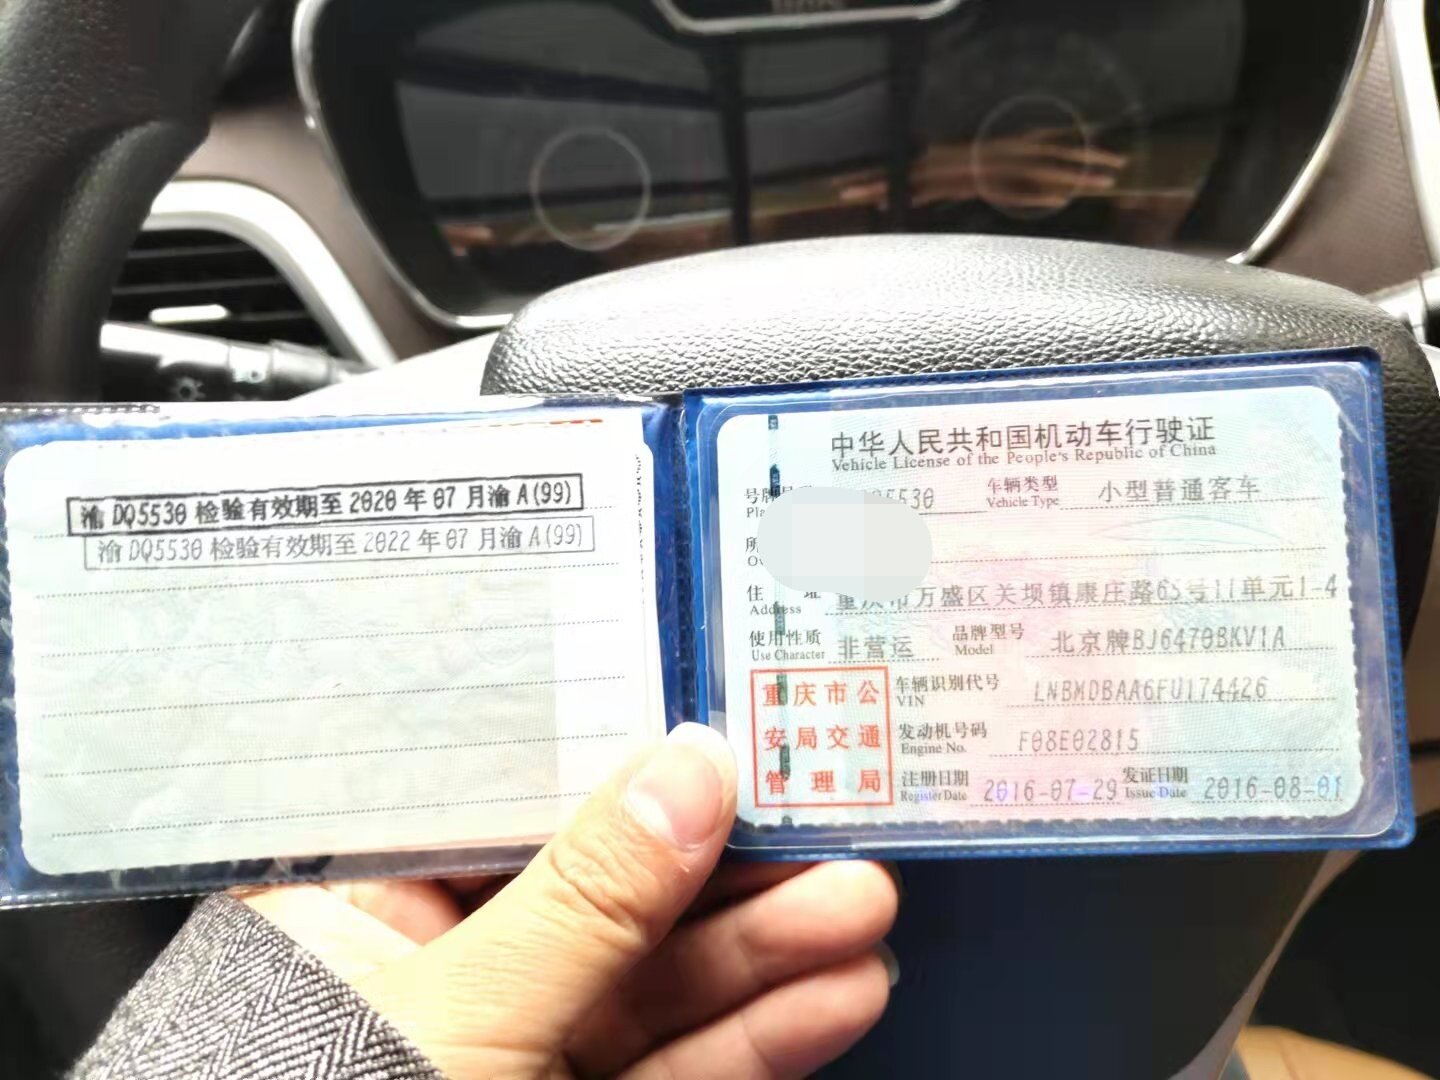 渝DQ5530检验有效期至2020年07月渝A(99)
渝DQ5530检验有效期至2022年07月渝A(99)
中华人民共和国机动车行驶证
Vehicle License of the People's Republic of China
号牌
5530
车辆类型
小型普通客车
Pla
Vehicle Type
所
住 址
重庆市万盛区关坝镇康庄路65号11单元1-4
Address
使用性质
非营运
品牌型号
北京牌BJ6470BKV1A
Use Character
Model
重庆市公
安局交通
管理局
车辆识别代号
LNBMDBAA6FU174426
VIN
发动机号码
F08E02815
Engine No.
注册日期
2016-07-29
发证日期
2016-08-01
Register Date
Issue Date